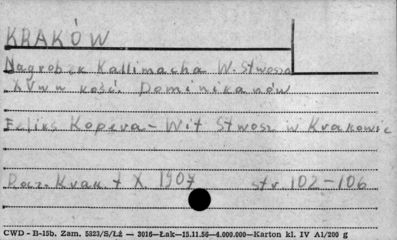 KRAKÓW
Nagrobek Kallimacha W. Stwosza
XV w w kość. Dominikanów
Feliks Kopera - Wit Stwosz w Krakowie
Rocz. Krak. t X. 1907 str. 102-106
CWD - B-15b. Zam. 5823/S/Łż — 3016—Łak—15.11.56—4.000.000—Karton kl. IV A1/200 g